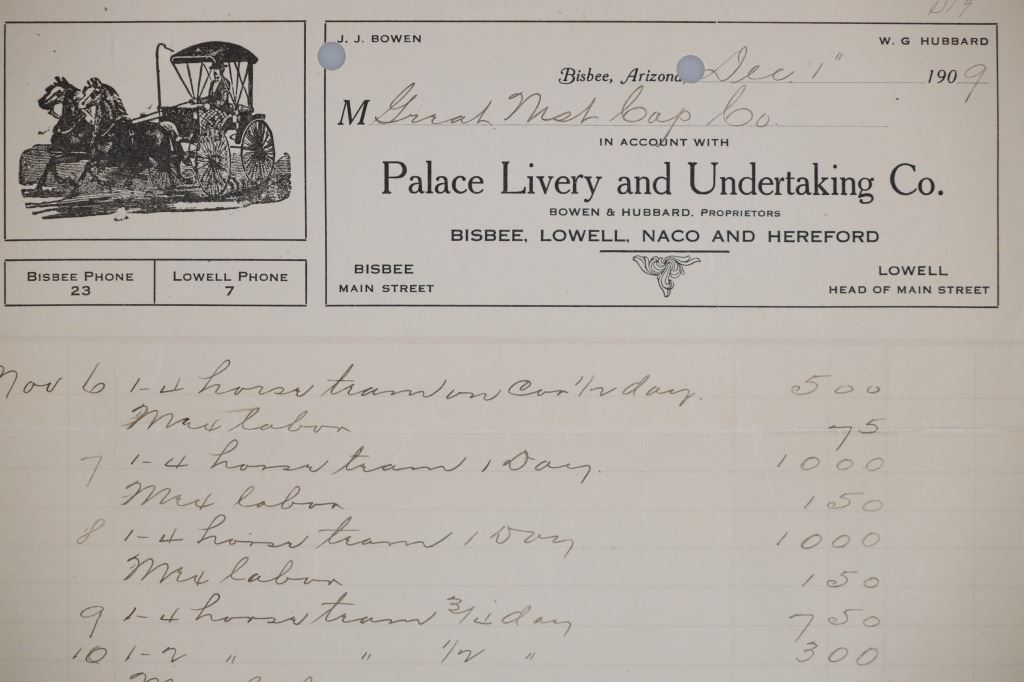 J. J. BOWEN
W. G HUBBARD
Bisbee, Arizona, Dec 1" 1909
M Great Wst Cop Co.
IN ACCOUNT WITH
Palace Livery and Undertaking Co.
BOWEN & HUBBARD, PROPRIETORS
BISBEE, LOWELL, NACO AND HEREFORD
BISBEE
MAIN STREET
LOWELL
HEAD OF MAIN STREET
BISBEE PHONE
23
LOWELL PHONE
7
Nov 6 1-4 horse team on Cor 1/2 day. 5 00
Mex labor 75
7 1-4 horse team 1 Day. 10 00
Mex labor 1 50
8 1-4 horse team 1 Day 10 00
Mex labor 1 50
9 1-4 horse team 3/4 day 7 50
10 1-2 " " 1/2 " 3 00